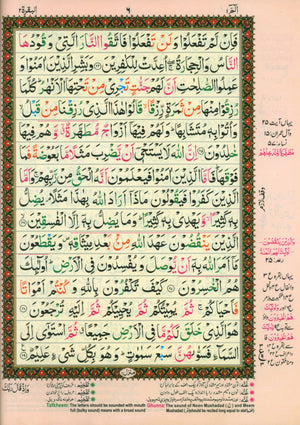 البقرة ٢
٦
الٓمّٓ ١
فَاِنْ لَّمْ تَفْعَلُوْا وَلَنْ تَفْعَلُوْا فَاتَّقُوا النَّارَ الَّتِیْ وَقُوْدُهَا
النَّاسُ وَالْحِجَارَةُ ۖۚ اُعِدَّتْ لِلْكٰفِرِیْنَ ﴿۲۴﴾ وَبَشِّرِ الَّذِیْنَ اٰمَنُوْا وَ
عَمِلُوا الصّٰلِحٰتِ اَنَّ لَهُمْ جَنّٰتٍ تَجْرِیْ مِنْ تَحْتِهَا الْاَنْهٰرُ ؕ كُلَّمَا
رُزِقُوْا مِنْهَا مِنْ ثَمَرَةٍ رِّزْقًا ۙ قَالُوْا هٰذَا الَّذِیْ رُزِقْنَا مِنْ قَبْلُ ۙ
وَاُتُوْا بِهٖ مُتَشَابِهًا ؕ وَلَهُمْ فِیْهَاۤ اَزْوَاجٌ مُّطَهَّرَةٌ ۙ وَّهُمْ فِیْهَا
خٰلِدُوْنَ ﴿۲۵﴾ اِنَّ اللّٰهَ لَا یَسْتَحْیٖۤ اَنْ یَّضْرِبَ مَثَلًا مَّا بَعُوْضَةً فَمَا
فَوْقَهَا ؕ فَاَمَّا الَّذِیْنَ اٰمَنُوْا فَیَعْلَمُوْنَ اَنَّهُ الْحَقُّ مِنْ رَّبِّهِمْ ۚ وَاَمَّا
الَّذِیْنَ كَفَرُوْا فَیَقُوْلُوْنَ مَاذَاۤ اَرَادَ اللّٰهُ بِهٰذَا مَثَلًا ۘ یُضِلُّ
بِهٖ كَثِیْرًا ۙ وَّیَهْدِیْ بِهٖ كَثِیْرًا ؕ وَمَا یُضِلُّ بِهٖۤ اِلَّا الْفٰسِقِیْنَ ﴿۲۶﴾
الَّذِیْنَ یَنْقُضُوْنَ عَهْدَ اللّٰهِ مِنْۢ بَعْدِ مِیْثَاقِهٖ ۪ وَیَقْطَعُوْنَ
مَاۤ اَمَرَ اللّٰهُ بِهٖۤ اَنْ یُّوْصَلَ وَیُفْسِدُوْنَ فِی الْاَرْضِ ؕ اُولٰٓئِكَ
هُمُ الْخٰسِرُوْنَ ﴿۲۷﴾ كَیْفَ تَكْفُرُوْنَ بِاللّٰهِ وَكُنْتُمْ اَمْوَاتًا
فَاَحْیَاكُمْ ۚ ثُمَّ یُمِیْتُكُمْ ثُمَّ یُحْیِیْكُمْ ثُمَّ اِلَیْهِ تُرْجَعُوْنَ ﴿۲۸﴾
هُوَ الَّذِیْ خَلَقَ لَكُمْ مَّا فِی الْاَرْضِ جَمِیْعًا ۗ ثُمَّ اسْتَوٰۤی اِلَی
السَّمَآءِ فَسَوّٰىهُنَّ سَبْعَ سَمٰوٰتٍ ؕ وَهُوَ بِكُلِّ شَیْءٍ عَلِیْمٌ ﴿۲۹﴾
وَاِذْ قَالَ رَبُّكَ
Tafkheem: The letters should be sounded with mouth full (bulky sound) means with a broad sound
Ghunna: The sound of Noon Mushadad (نّ) and Meem Mushadad (مّ) should be recited long equal to one